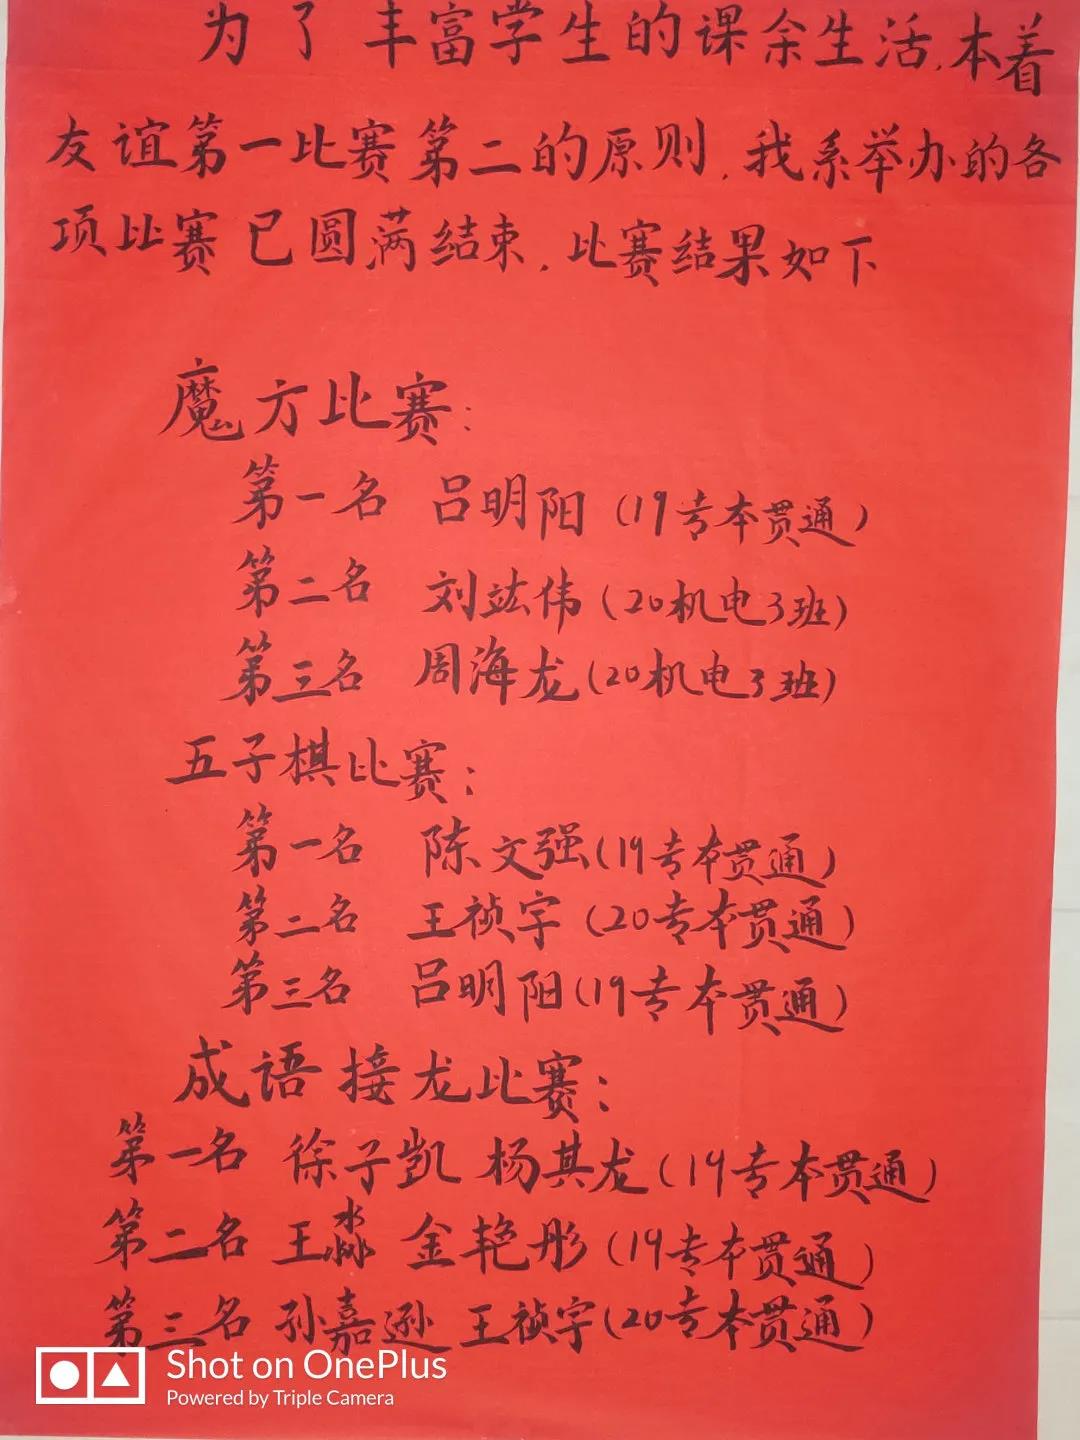 为了丰富学生的课余生活,本着
友谊第一比赛第二的原则,我系举办的各
项比赛已圆满结束,比赛结果如下
魔方比赛:
第一名 吕明阳(19专本贯通)
第二名 刘竑伟(20机电3班)
第三名 周海龙(20机电3班)
五子棋比赛:
第一名 陈文强(19专本贯通)
第二名 王祯宇(20专本贯通)
第三名 吕明阳(19专本贯通)
成语接龙比赛:
第一名 徐子凯 杨其龙(19专本贯通)
第二名 王淼 金艳彤(19专本贯通)
第三名 孙嘉逊 王祯宇(20专本贯通)
Shot on OnePlus
Powered by Triple Camera